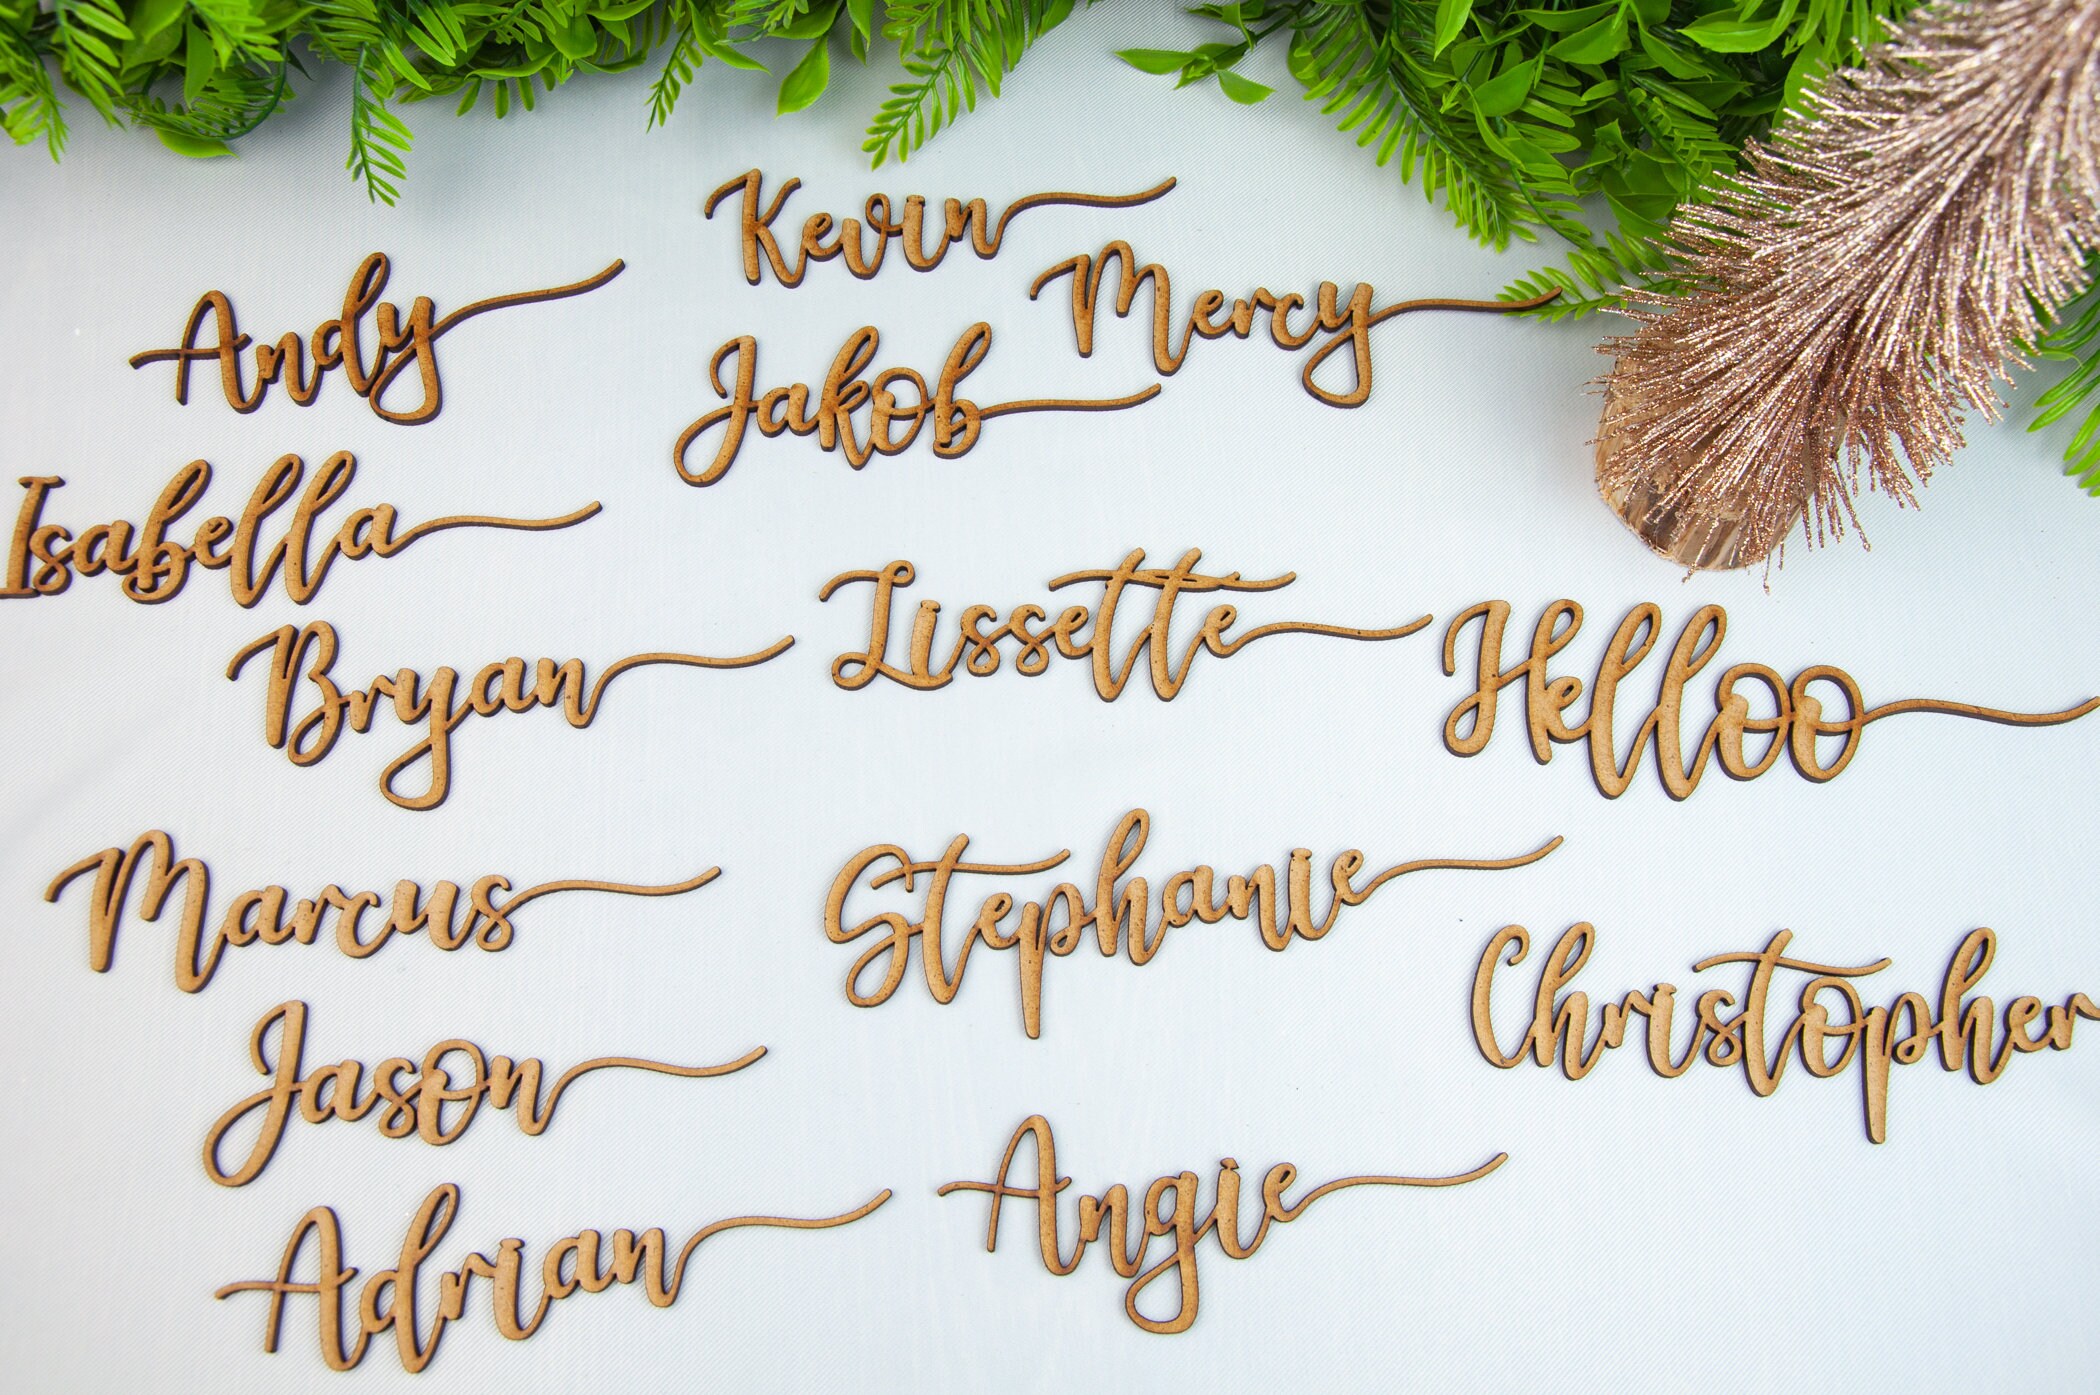 Kevin
Andy
Mercy
Jakob
Isabella
Lissette
Bryan
Helloo
Marcus
Stephanie
Christopher
Jason
Angie
Adrian